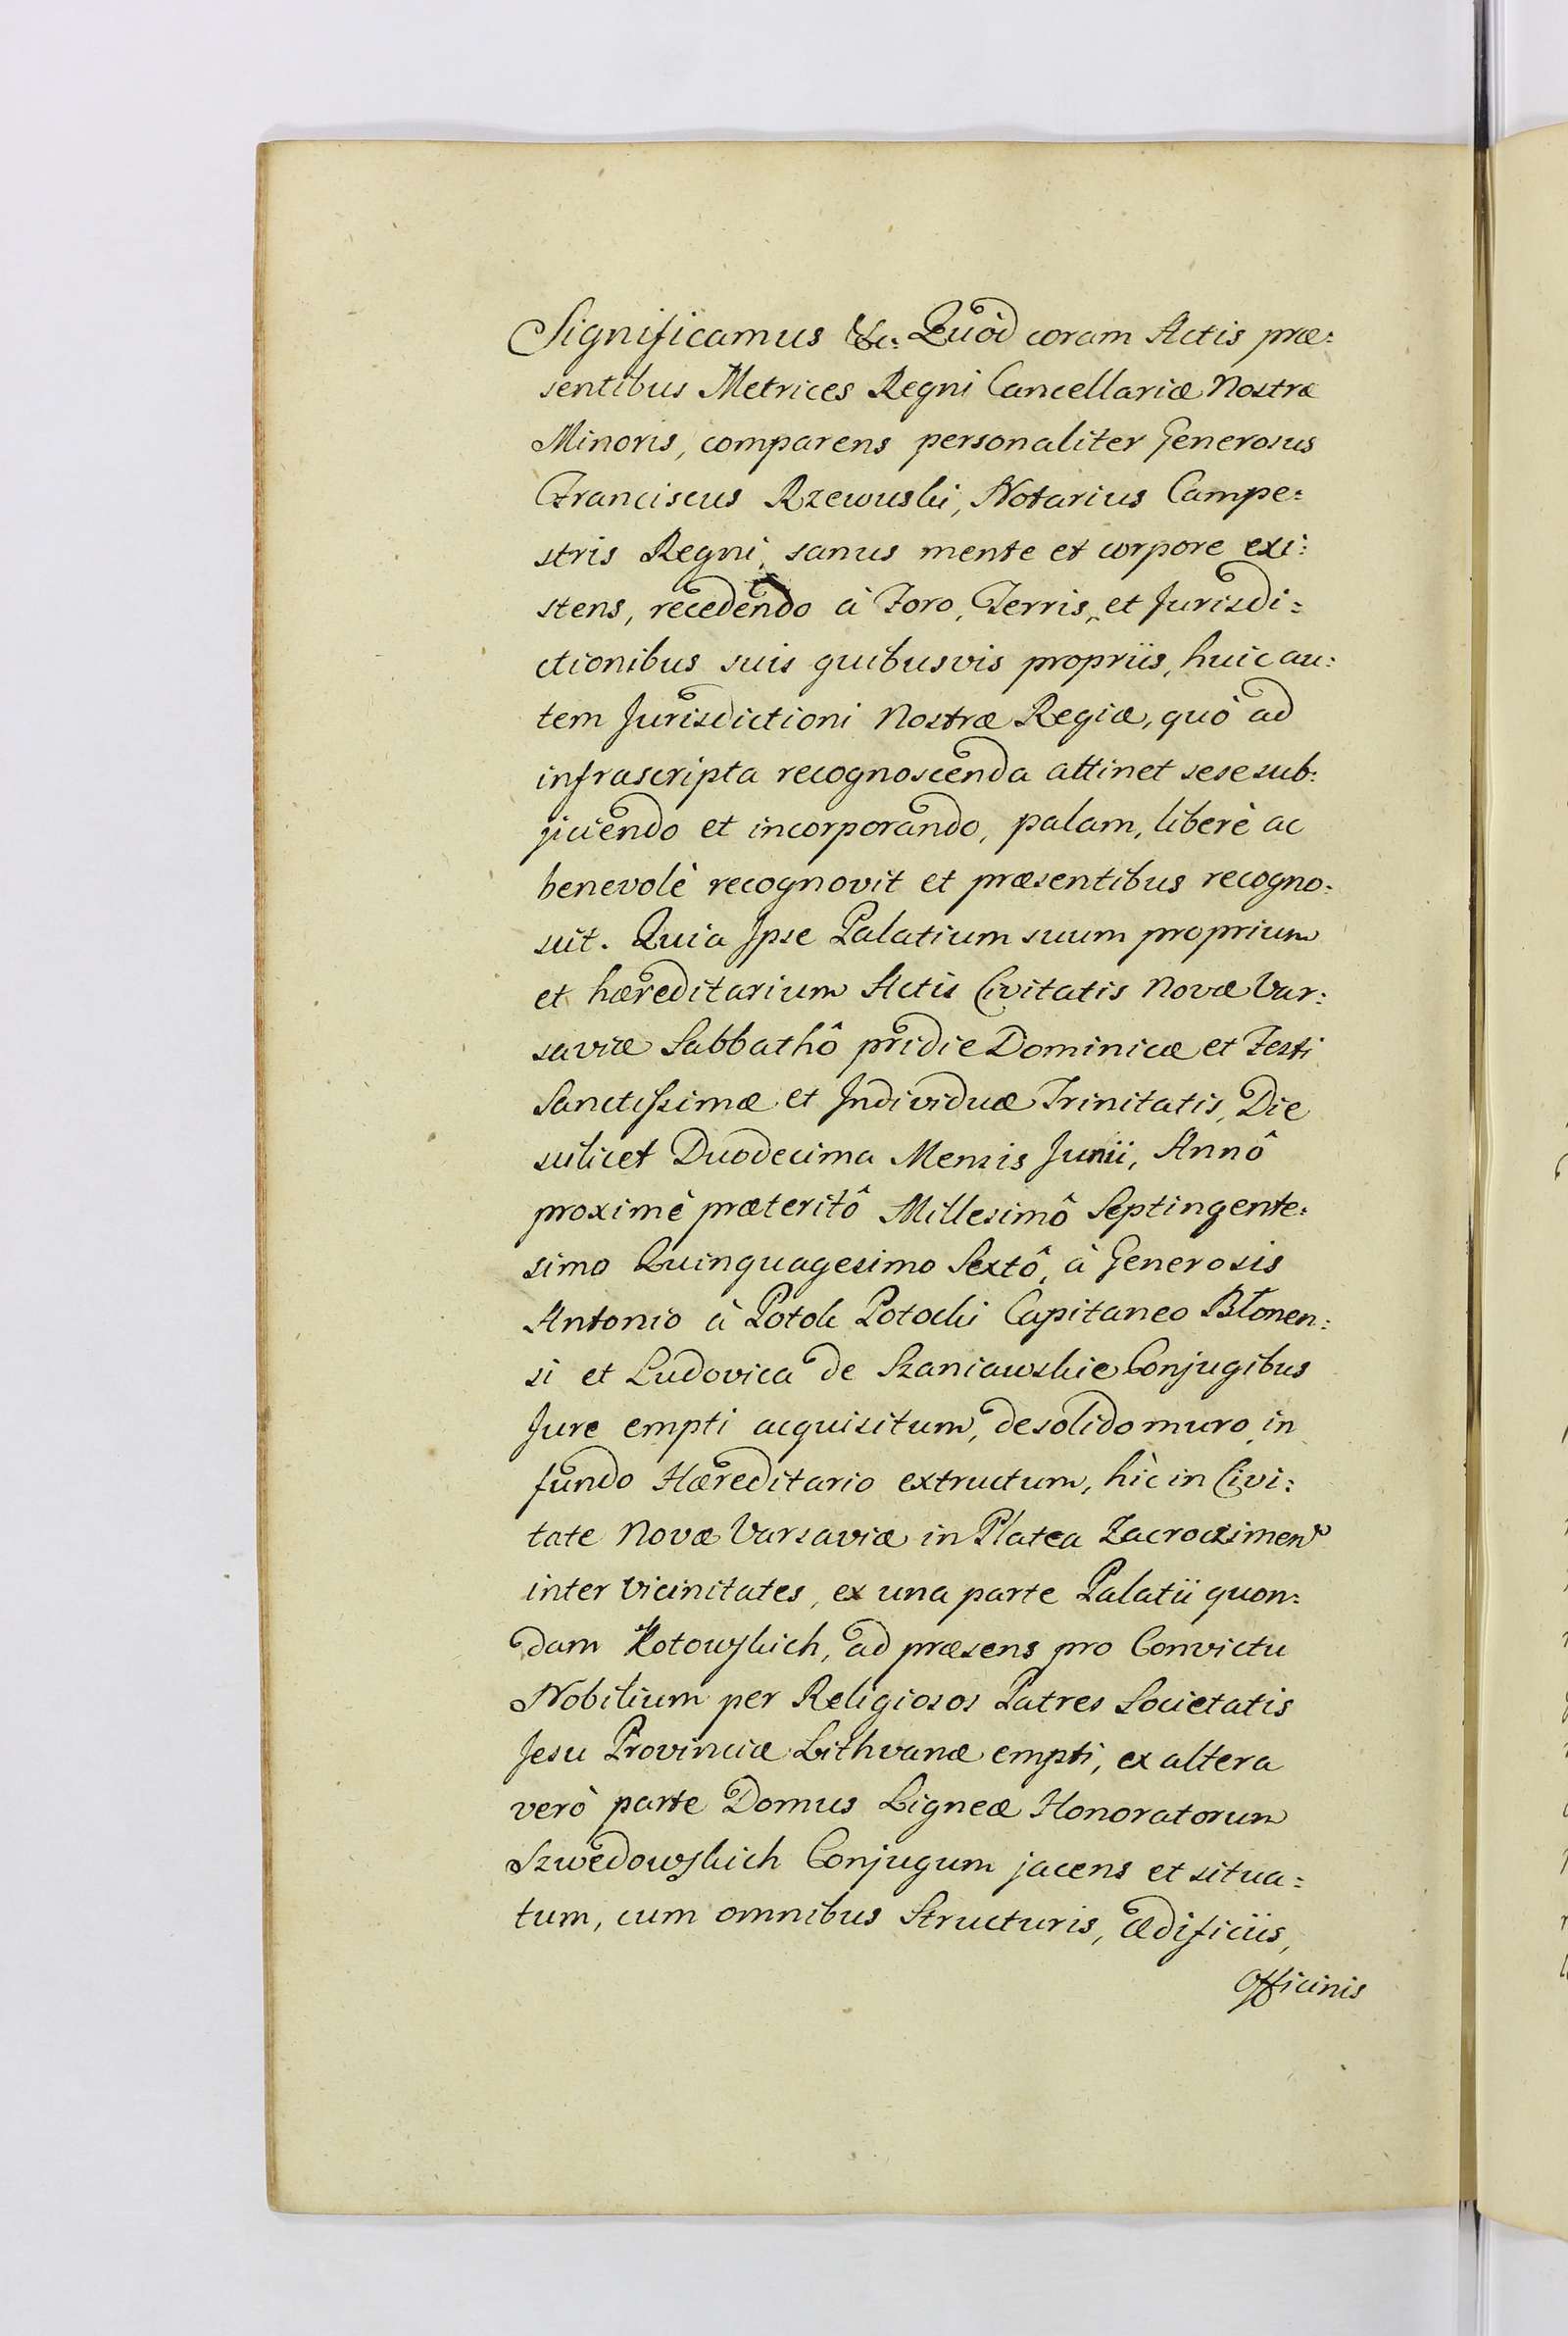 Significamus &c: Quòd coram Actis præ:
sentibus Metrices Regni Cancellariæ Nostræ
Minoris, comparens personaliter Generosus
Franciscus Rzewuski, Notarius Campe:
stris Regni, sanus mente et corpore exi:
stens, recedendo à Foro, Terris, et Jurisdi:
ctionibus suis quibusvis propriis, huic au:
tem Jurisdictioni Nostræ Regiæ, quò ad
infrascripta recognoscenda attinet sese sub:
jiciendo et incorporando, palam, liberè ac
benevolè recognovit et præsentibus recogno:
scit. Quia Ipse Palatium suum proprium
et hæreditarium Actis Civitatis Novæ Var:
saviæ Sabbathô pridie Dominicæ et Festi
Sanctissimæ et Individuæ Trinitatis, Die
scilicet Duodecima Mensis Junii, Annô
proximè præteritô Millesimô Septingente:
simo Quinquagesimo Sextô, à Generosis
Antonio à Potok Potocki Capitaneo Błonen:
si et Ludovica de Szaniawskie Conjugibus
Jure empti acquisitum, de solido muro in
fundo Hæreditario extructum, hìc in Civi:
tate Novæ Varsaviæ in Platea Zacroczimen
inter vicinitates, ex una parte Palatii quon:
dam Kotowskich, ad præsens pro Convictu
Nobilium per Religiosos Patres Societatis
Jesu Provinciæ Lithvanæ empti, ex altera
verò parte Domus Ligneæ Honoratorum
Szwedowskich Conjugum jacens et situa:
tum, cum omnibus Structuris, ædificiis,
Officinis